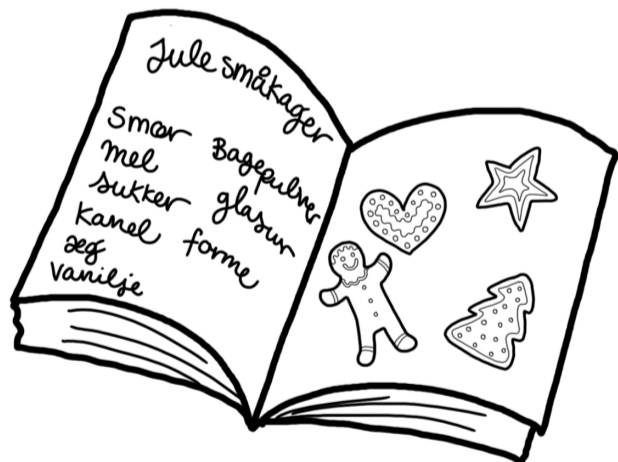 Jule småkager
Smør
mel
sukker
kanel
æg
Vanilje
Bagepulver
glasur
forme